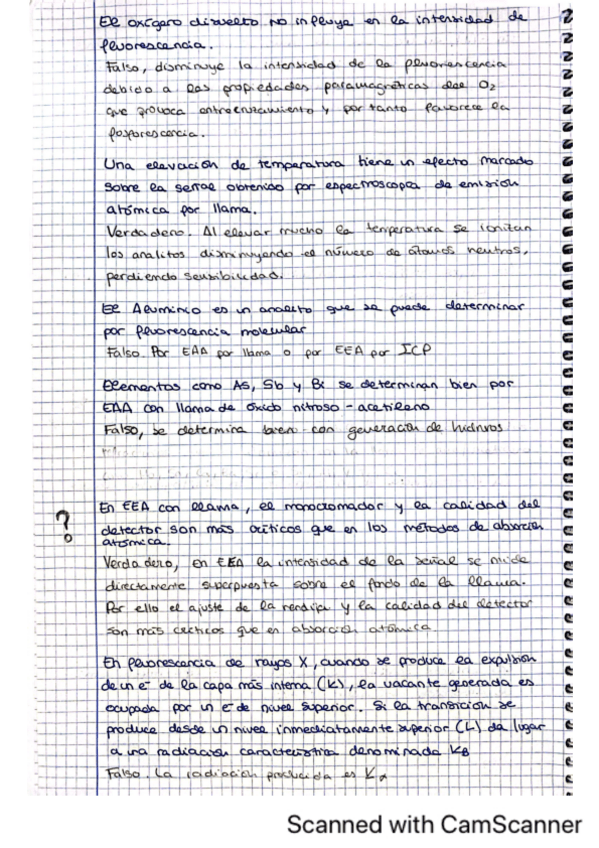 El oxígeno disuelto no influye en la intensidad de
fluorescencia.
Falso, disminuye la intensidad de la fluorescencia
debido a las propiedades paramagnéticas del O2
que provoca entrecruzamiento y por tanto favorece la
fosforescencia.
Una elevación de temperatura tiene un efecto marcado
sobre la señal obtenida por espectroscopía de emisión
atómica por llama.
Verdadero. Al elevar mucho la temperatura se ionizan
los analitos disminuyendo el número de átomos neutros,
perdiendo sensibilidad.
El Aluminio es un analito que se puede determinar
por fluorescencia molecular
Falso. Por EAA por llama o por EEA por ICP
Elementos como As, Sb y Bi se determinan bien por
EAA con llama de óxido nitroso - acetileno
Falso, se determina bien con generación de hidruros
?
En EEA con llama, el monocromador y la calidad del
detector son más críticos que en los métodos de absorción
atómica.
Verdadero, en EEA la intensidad de la señal se mide
directamente superpuesta sobre el fondo de la llama.
Por ello el ajuste de la rendija y la calidad del detector
son más críticos que en absorción atómica.
En fluorescencia de rayos X, cuando se produce la expulsión
de un e- de la capa más interna (K), la vacante generada es
ocupada por un e- de nivel superior. Si la transición se
produce desde un nivel inmediatamente superior (L) da lugar
a una radiación característica denominada Kβ
Falso. La radiación producida es Kα
Scanned with CamScanner